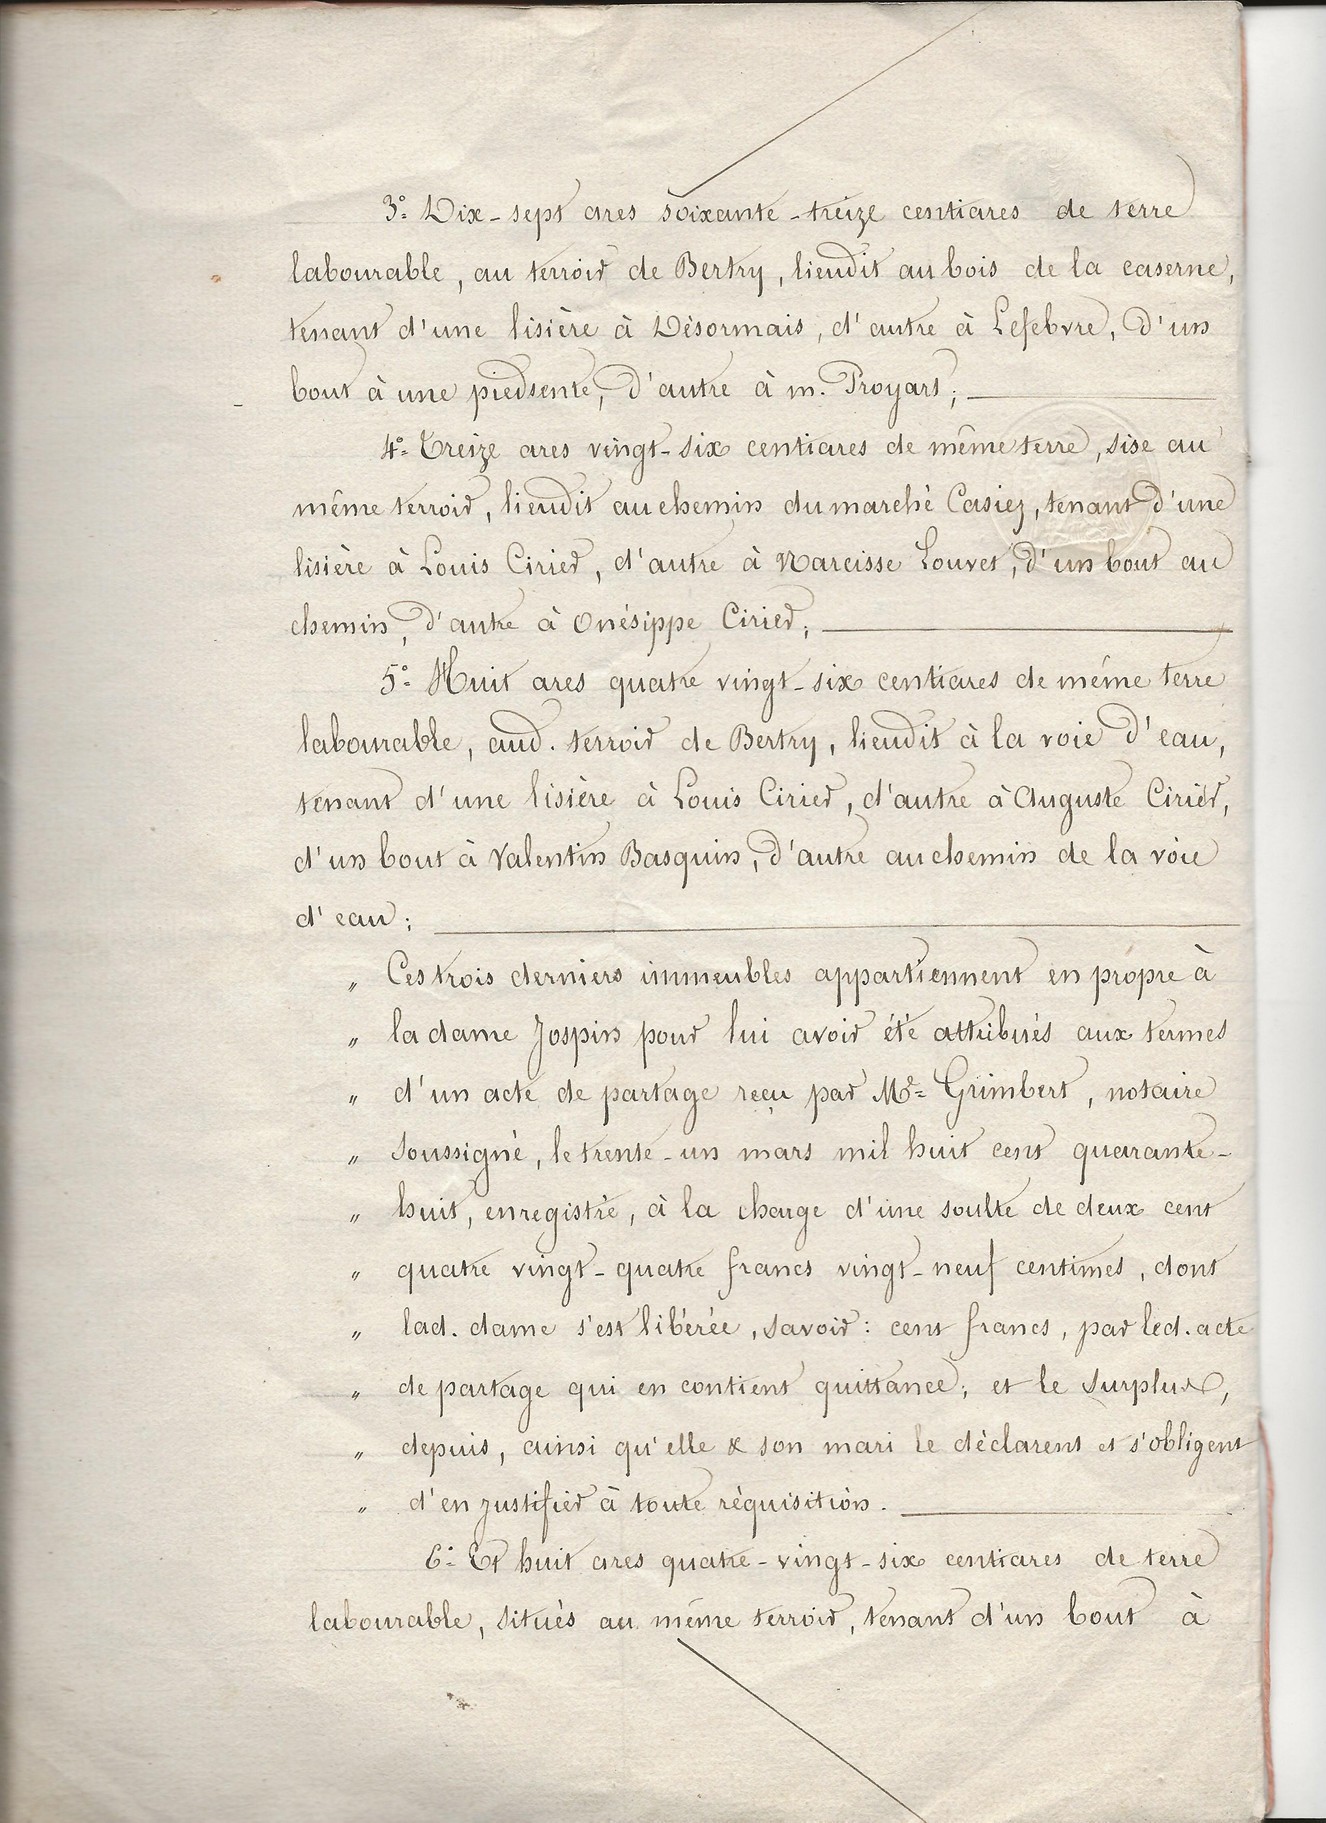 3° Dix-sept ares soixante-treize centiares de terre
labourable, au terroir de Bertry, lieudit au bois de la caserne,
tenant d'une lisière à Désormais, d'autre à Lefebvre, d'un
bout à une piedsente, d'autre à m. Proyart;
4° Treize ares vingt-six centiares de même terre, sise au
même terroir, lieudit au chemin du marché Casiez, tenant d'une
lisière à Louis Cirier, d'autre à Narcisse Louvet, d'un bout au
chemin, d'autre à Onésippe Cirier;
5° Huit ares quatre vingt-six centiares de même terre
labourable, aud. terroir de Bertry, lieudit à la voie d'eau,
tenant d'une lisière à Louis Cirier, d'autre à Auguste Cirier,
d'un bout à Valentin Basquin, d'autre au chemin de la voie
d'eau;
" Ces trois derniers immeubles appartiennent en propre à
" la dame Jospin pour lui avoir été attribués aux termes
" d'un acte de partage reçu par Me Grimbert, notaire
" soussigné, le trente-un mars mil huit cent quarante-
" huit, enregistré, à la charge d'une soulte de deux cent
" quatre vingt-quatre francs vingt-neuf centimes, dont
" lad. dame s'est libérée, savoir: cent francs, par led. acte
" de partage qui en contient quittance; et le surplus,
" depuis, ainsi qu'elle & son mari le déclarent et s'obligent
" d'en justifier à toute réquisition.
6° Et huit ares quatre-vingt-six centiares de terre
labourable, situés au même terroir, tenant d'un bout à